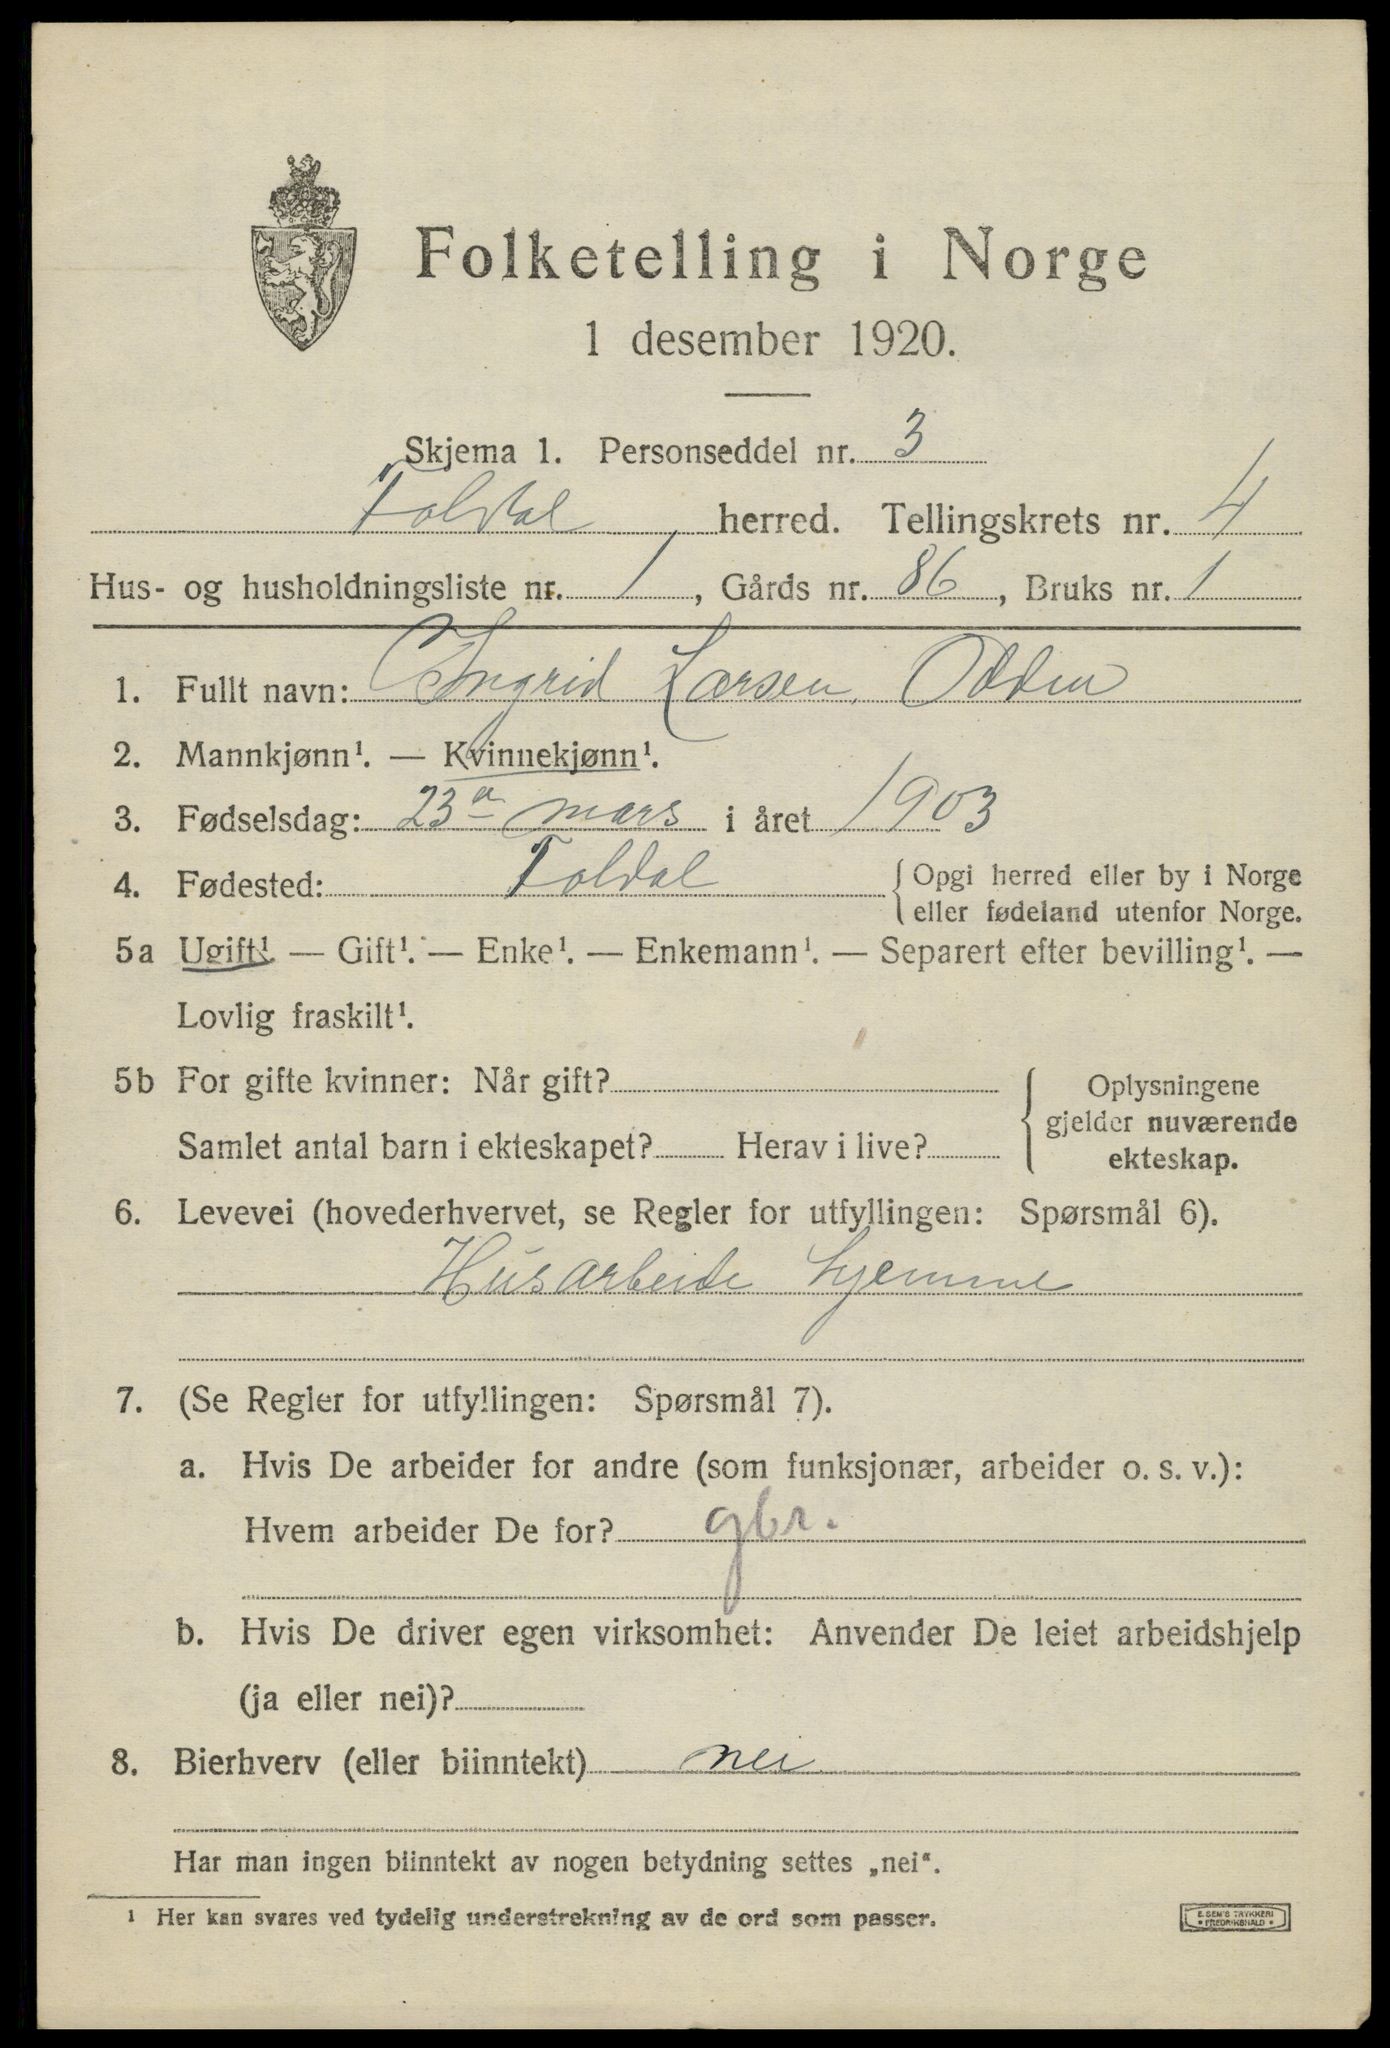 Folketelling i Norge
1 desember 1920.
Skjema 1. Personseddel nr. 3
Foldal herred. Tellingskrets nr. 4
Hus- og husholdningsliste nr. 1, Gårds nr. 86, Bruks nr. 1
1. Fullt navn: Ingrid Larsen Odden
2. Mannkjønn¹. — Kvinnekjønn¹.
3. Fødselsdag: 23 mars i året 1903
4. Fødested: Foldal { Opgi herred eller by i Norge
eller fødeland utenfor Norge.
5a Ugift¹. — Gift¹. — Enke¹. — Enkemann¹. — Separert efter bevilling¹. —
Lovlig fraskilt¹.
5b For gifte kvinner: Når gift?
Samlet antal barn i ekteskapet? Herav i live?
Oplysningene
gjelder nuværende
ekteskap.
6. Levevei (hovederhvervet, se Regler for utfyllingen: Spørsmål 6).
Husarbeide hjemme
7. (Se Regler for utfyllingen: Spørsmål 7).
a. Hvis De arbeider for andre (som funksjonær, arbeider o. s. v.):
Hvem arbeider De for? gbr.
b. Hvis De driver egen virksomhet: Anvender De leiet arbeidshjelp
(ja eller nei)?
8. Bierhverv (eller biinntekt) nei
Har man ingen biinntekt av nogen betydning settes „nei“.
¹ Her kan svares ved tydelig understrekning av de ord som passer.
E. SEM'S TRYKKERI
• FREDRIKSHALD •